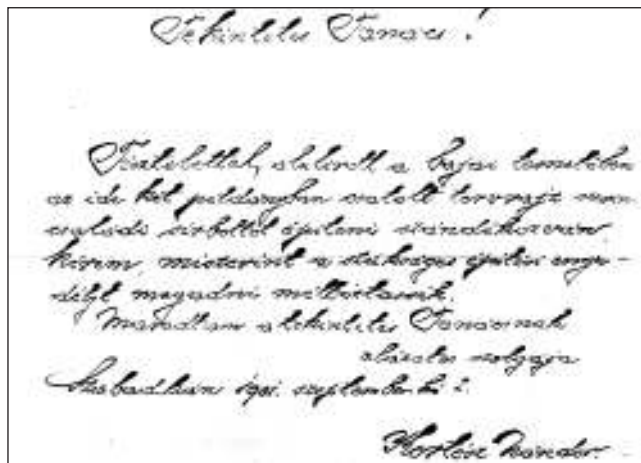 Tekintetes Tanács!
Tisztelettel, alulirott a bajai temetőben
az ide két példányban csatolt tervrajz szerint
családi sirboltot épiteni szándékozván
kérem, miszerint a szükséges épitési enge-
délyt megadni méltóztassék.
Maradtam a tekintetes Tanácsnak
alázatos szolgája
Szabadkán 1901. szeptember hó 2.
Nándor